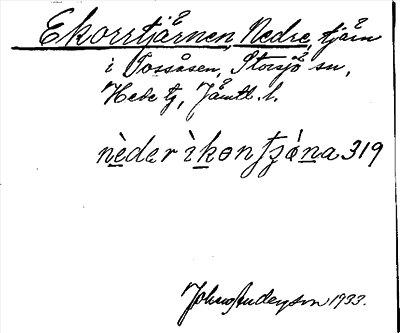 Ekorrtjärnen, Nedre, tjärn
i Tossåsen, Storsjö sn,
Hede tg, Jämtl. l.
nèder ìkɵntʂǿna 319
Johns Anderson 1933.